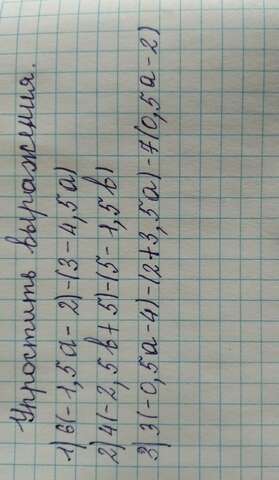 Упростить выражения.
1) 6(-1,5a - 2)-(3-4,5a)
2) 4(-2,5b+5)-(5-1,5b)
3) 3(-0,5a-4)-(2+3,5a)-7(0,5a-2)